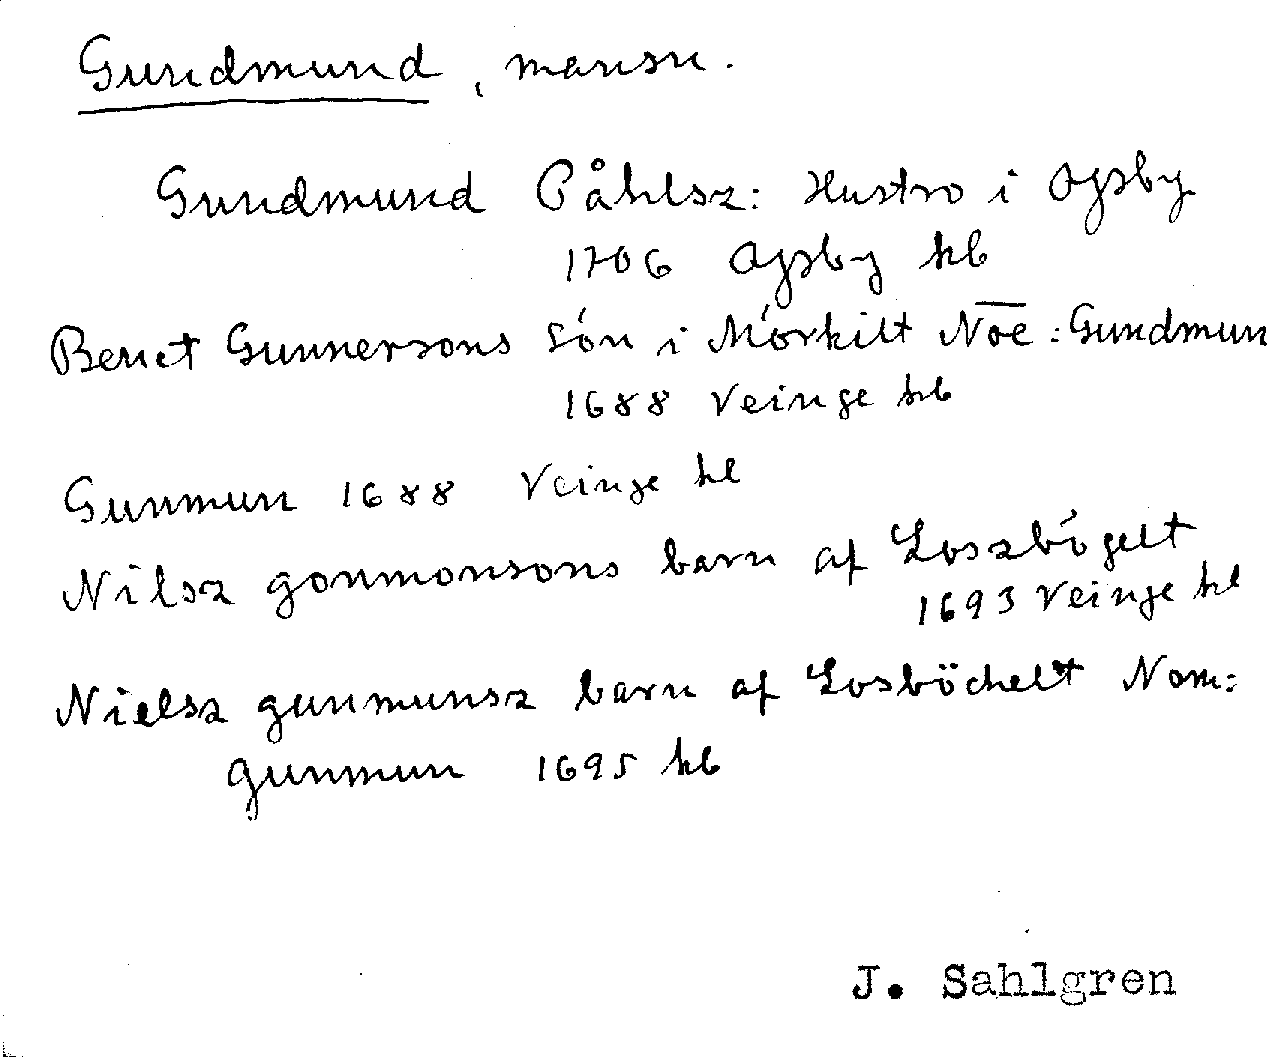 Gundmund, mansn.
Gundmund Påhlsz: Hustro i Ogsby
1706 Ogsby kb
Benct Gunnersons són i Mórkilt Nōē: Gundmun
1688 Veinge kb
Gunmun 1688 Veinge kb
Nilsz gonmonsons barn af Loszbógelt
1693 Veinge kb
Nielsz gunmunsz barn af Losböchelt Nom:
gunmun 1695 kb
J. Sahlgren